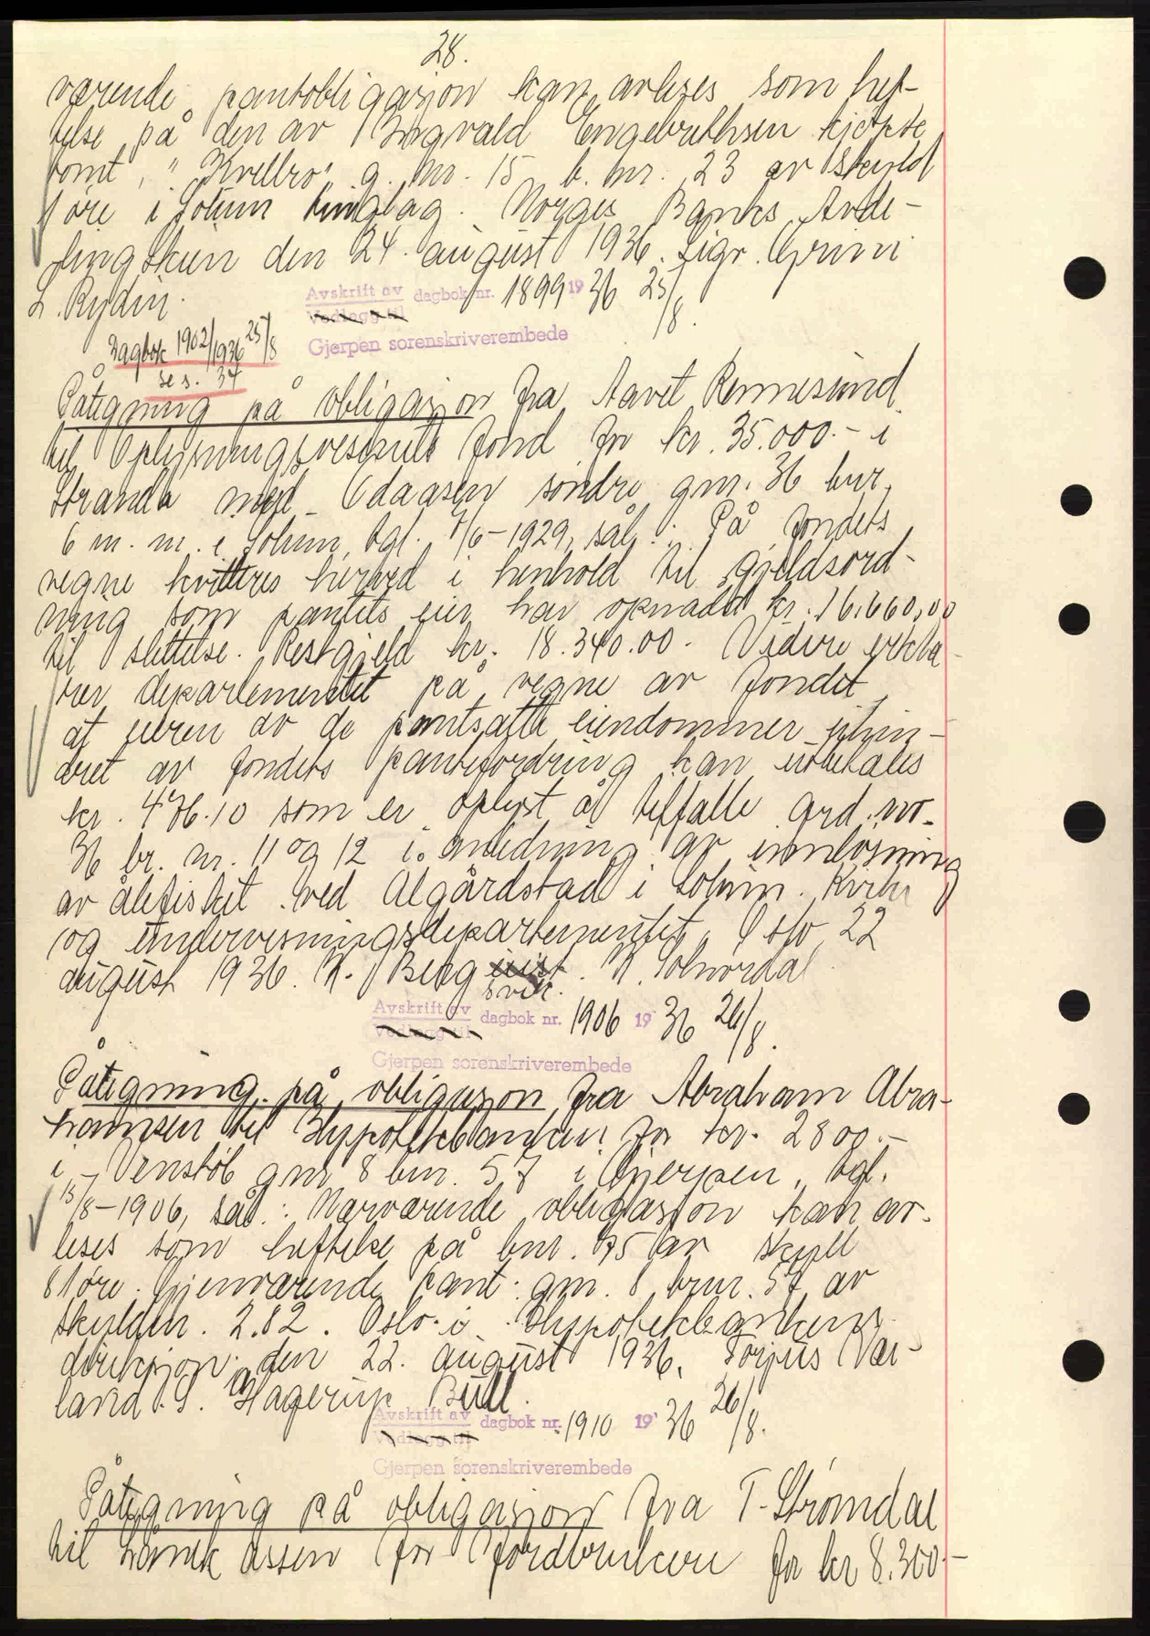 28.
værende pantobligasjon kan avleses som hef-
telse på den av Ingvald Engebrethsen kjøpte
tomt, "Kvellro" g. nr. 15 b. nr. 23 av skyld
1 øre i Solum tinglag. Norges Banks Avde-
ling Skien den 24. august 1936. sign. Grini
L. Rydin.
Avskrift av dagbok nr. 1899 1936 25/8.
Vedlegg til
Gjerpen sorenskriverembede
Dagbok 1902/1936 25/8
se s. 34
Påtegning på obligasjon fra Aavet Rennesund
til Oplysningsvesenets fond for kr. 35.000.- i
Stranda med Odaasen søndre gnr. 36 bnr.
6 m. m. i Solum, tgl. 7/6-1929, sål.: På fondets
vegne kvitteres herved i henhold til gjeldsord-
ning som pantets eier har opnådd kr. 16.660,00
til slettelse. Restgjeld kr. 18.340.00. Videre erklæ-
rer departementet på vegne av fondet
at eieren av de pantsatte eiendommer uhin-
dret av fondets pantefordring kan utbetales
kr. 476.10 som er oplyst å tilfalle grd. nr.
36 br. nr. 11 og 12 i anledning av innløsning
av ålefisket ved Algårdstad i Solum. Kirke
og undervisningsdepartementet, Oslo 22
august 1936. K. Berg. K. Solnørdal
Avskrift av dagbok nr. 1906 1936 26/8.
Vedlegg til
Gjerpen sorenskriverembede
Påtegning på obligasjon fra Abraham Abra-
hamsen til Hypotekbanken for kr. 2800.-
i Venstøb gnr 8 bnr. 57 i Gjerpen, tgl.
15/8-1906, sål.: Nærværende obligasjon kan av-
leses som heftelse på bnr. 75 av skyld
81 øre. Gjenværende pant: gnr. 8 bnr. 57 av
skylden. 2.82. Oslo i Hypotekbankens
direksjon den 22. august 1936. Torjus Vær-
land. S. Hagerup Bull.
Avskrift av dagbok nr. 1910 1936 26/8.
Vedlegg til
Gjerpen sorenskriverembede
Påtegning på obligasjon fra T. Strømdal
til Lånekassen for Jordbrukere for kr 8.300.-